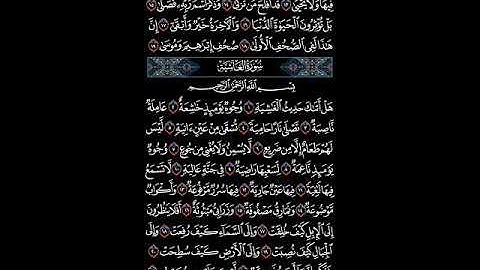 فِيهَا وَلَا يَحْيَىٰ ١٣ قَدْ أَفْلَحَ مَن تَزَكَّىٰ ١٤ وَذَكَرَ ٱسْمَ رَبِّهِۦ فَصَلَّىٰ ١٥
بَلْ تُؤْثِرُونَ ٱلْحَيَوٰةَ ٱلدُّنْيَا ١٦ وَٱلْءَاخِرَةُ خَيْرٌ وَأَبْقَىٰٓ ١٧ إِنَّ
هَٰذَا لَفِى ٱلصُّحُفِ ٱلْأُولَىٰ ١٨ صُحُفِ إِبْرَٰهِيمَ وَمُوسَىٰ ١٩
سُورَةُ الغَاشِيَةِ
بِسْمِ ٱللَّهِ ٱلرَّحْمَٰنِ ٱلرَّحِيمِ
هَلْ أَتَىٰكَ حَدِيثُ ٱلْغَٰشِيَةِ ١ وُجُوهٌ يَوْمَئِذٍ خَٰشِعَةٌ ٢ عَامِلَةٌ
نَّاصِبَةٌ ٣ تَصْلَىٰ نَارًا حَامِيَةً ٤ تُسْقَىٰ مِنْ عَيْنٍ ءَانِيَةٍ ٥ لَّيْسَ
لَهُمْ طَعَامٌ إِلَّا مِن ضَرِيعٍ ٦ لَّا يُسْمِنُ وَلَا يُغْنِى مِن جُوعٍ ٧ وُجُوهٌ
يَوْمَئِذٍ نَّاعِمَةٌ ٨ لِّسَعْيِهَا رَاضِيَةٌ ٩ فِى جَنَّةٍ عَالِيَةٍ ١٠ لَّا تَسْمَعُ
فِيهَا لَٰغِيَةً ١١ فِيهَا عَيْنٌ جَارِيَةٌ ١٢ فِيهَا سُرُرٌ مَّرْفُوعَةٌ ١٣ وَأَكْوَابٌ
مَّوْضُوعَةٌ ١٤ وَنَمَارِقُ مَصْفُوفَةٌ ١٥ وَزَرَابِىُّ مَبْثُوثَةٌ ١٦ أَفَلَا يَنظُرُونَ
إِلَى ٱلْإِبِلِ كَيْفَ خُلِقَتْ ١٧ وَإِلَى ٱلسَّمَآءِ كَيْفَ رُفِعَتْ ١٨ وَإِلَى
ٱلْجِبَالِ كَيْفَ نُصِبَتْ ١٩ وَإِلَى ٱلْأَرْضِ كَيْفَ سُطِحَتْ ٢٠